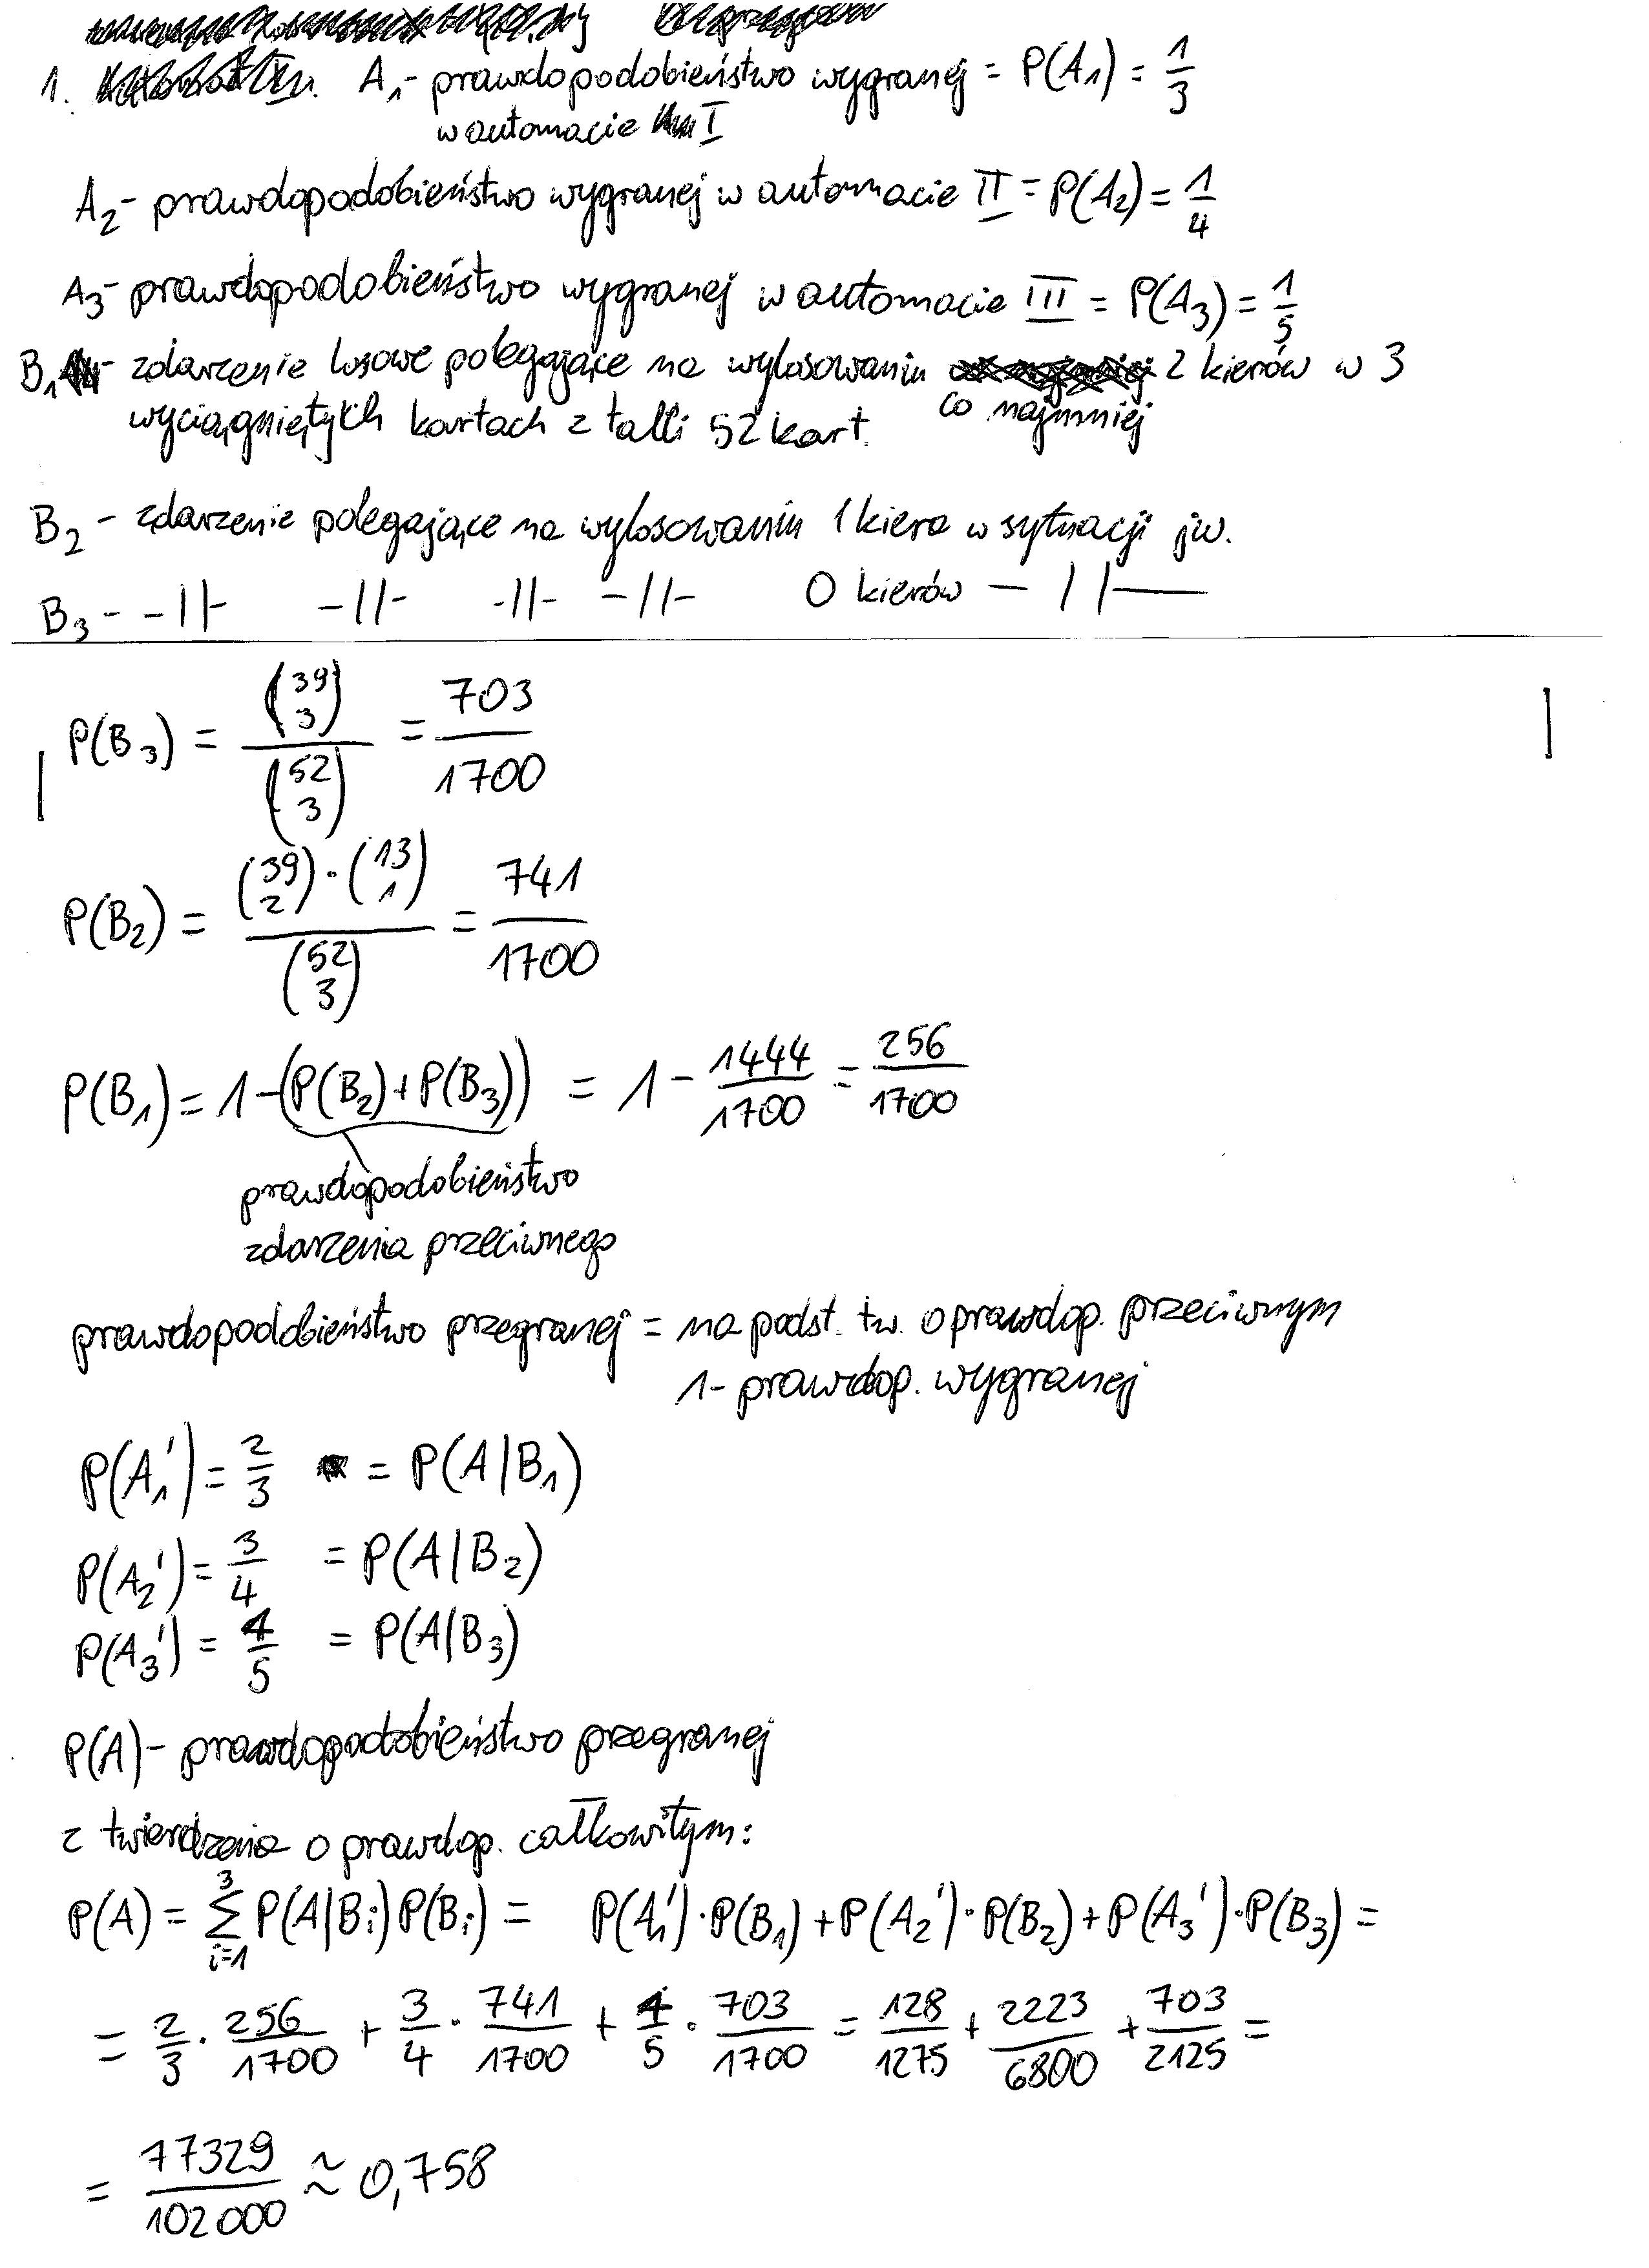 1. A₁- prawdopodobieństwo wygranej = P(A₁) = 1/3
w automacie I
A₂- prawdopodobieństwo wygranej w automacie II = P(A₂) = 1/4
A₃- prawdopodobieństwo wygranej w automacie III = P(A₃) = 1/5
B₁ - zdarzenie losowe polegające na wylosowaniu co najmniej 2 kierów w 3
wyciągniętych kartach z talii 52 kart.
B₂ - zdarzenie polegające na wylosowaniu 1 kiera w sytuacji jw.
B₃ - -||- -||- -||- -||- 0 kierów -||-
P(B₃) = (39 3)/(52 3) = 703/1700
P(B₂) = (39 2)·(13 1)/(52 3) = 741/1700
P(B₁) = 1-(P(B₂)+P(B₃)) = 1 - 1444/1700 = 256/1700
prawdopodobieństwo
zdarzenia przeciwnego
prawdopodobieństwo przegranej = na podst. tw. o prawdop. przeciwnym
1- prawdop. wygranej
P(A₁') = 2/3 = P(A|B₁)
P(A₂') = 3/4 = P(A|B₂)
P(A₃') = 4/5 = P(A|B₃)
P(A) - prawdopodobieństwo przegranej
z twierdzenia o prawdop. całkowitym:
P(A) = ∑_{i=1}^{3} P(A|Bᵢ)P(Bᵢ) = P(A₁')·P(B₁)+P(A₂')·P(B₂)+P(A₃')·P(B₃) =
= 2/3 · 256/1700 + 3/4 · 741/1700 + 4/5 · 703/1700 = 128/1275 + 2223/6800 + 703/2125 =
= 77329/102000 ≈ 0,758